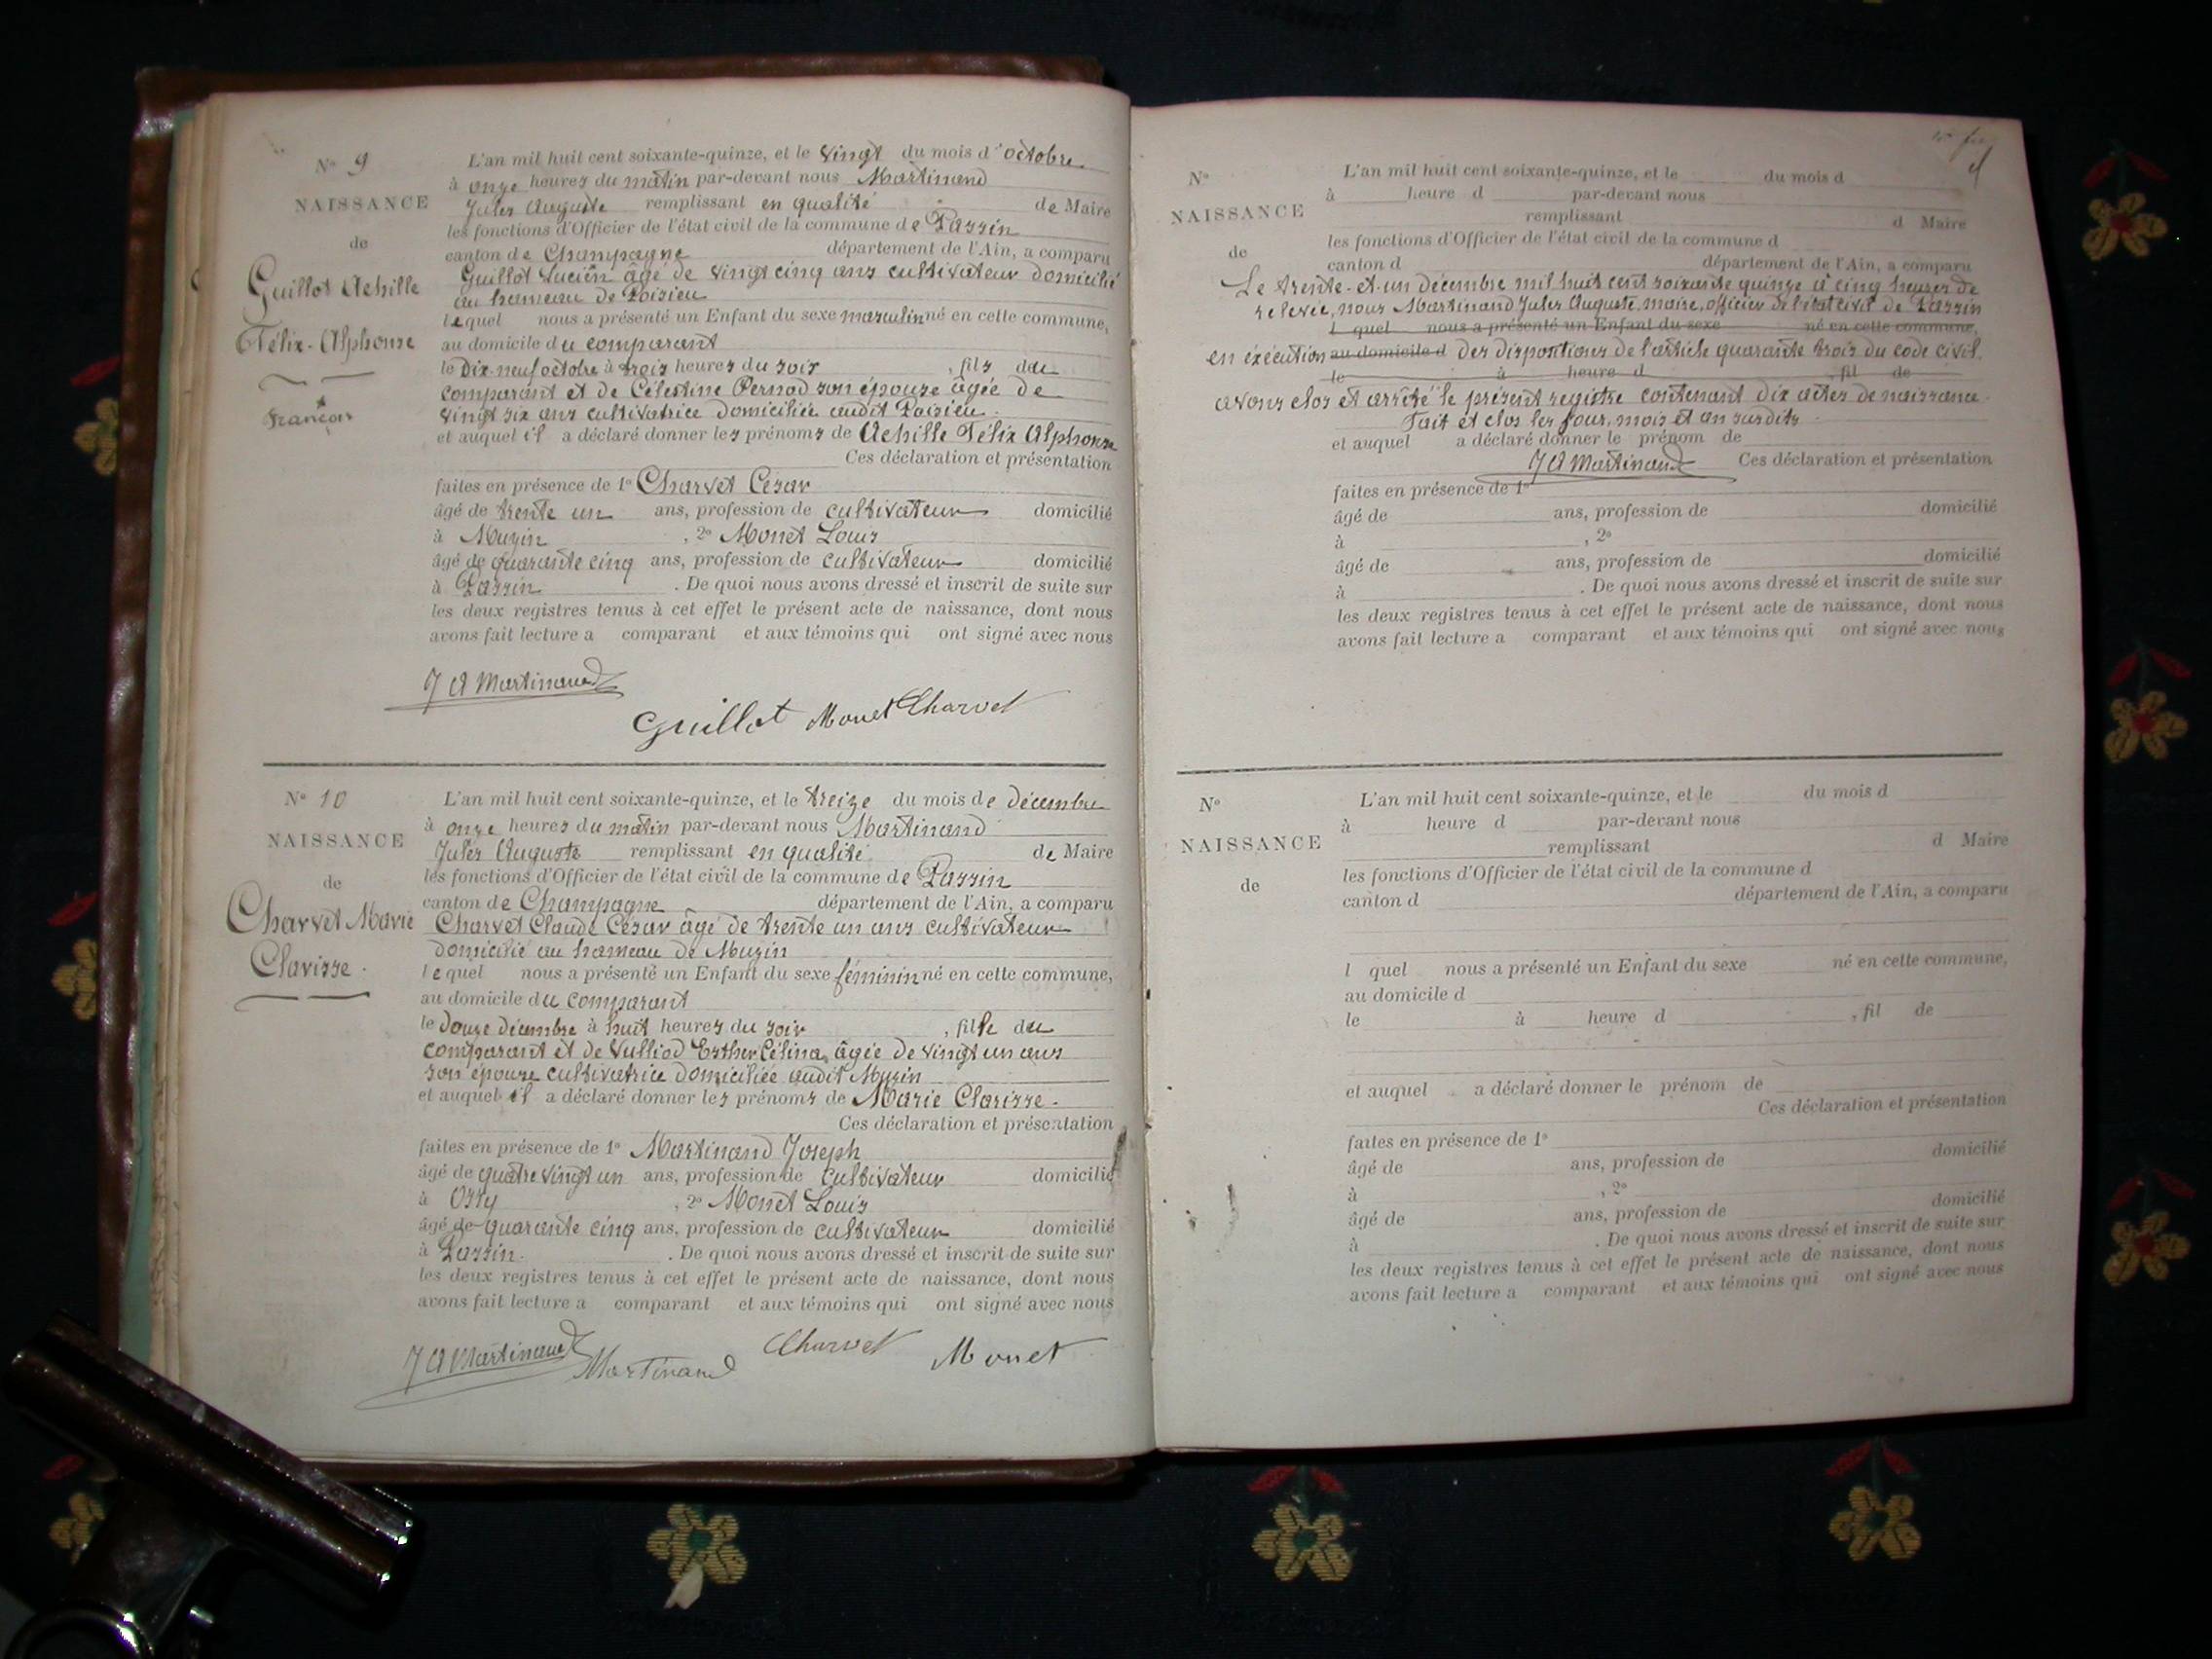 N° 9
NAISSANCE
de
Guillot Achille
Félix-Alphonse
Français
L'an mil huit cent soixante-quinze, et le vingt du mois d'octobre
à onze heures du matin par-devant nous Martinand
Jules Auguste remplissant en qualité de Maire
les fonctions d'Officier de l'état civil de la commune de Passin
canton de Champagne département de l'Ain, a comparu
Guillot Lucien âgé de vingt cinq ans cultivateur domicilié
au hameau de Poisieu
lequel nous a présenté un Enfant du sexe masculin né en cette commune,
au domicile du comparant
le Dix-neuf octobre à trois heures du soir , fils du
comparant et de Célestine Pernod son épouse âgée de
vingt six ans cultivatrice domiciliée audit Poisieu.
et auquel il a déclaré donner les prénoms de Achille Félix Alphonse
Ces déclaration et présentation
faites en présence de 1° Charvet Cesar
âgé de trente un ans, profession de cultivateur domicilié
à Muzin , 2° Monet Louis
âgé de quarante cinq ans, profession de cultivateur domicilié
à Passin . De quoi nous avons dressé et inscrit de suite sur
les deux registres tenus à cet effet le présent acte de naissance, dont nous
avons fait lecture a comparant et aux témoins qui ont signé avec nous
J A Martinand
Guillot Monet Charvet
N° 10
NAISSANCE
de
Charvet Marie
Clarisse.
L'an mil huit cent soixante-quinze, et le treize du mois de décembre
à onze heures du matin par-devant nous Martinand
Jules Auguste remplissant en qualité de Maire
les fonctions d'Officier de l'état civil de la commune de Passin
canton de Champagne département de l'Ain, a comparu
Charvet Claude César âgé de trente un ans cultivateur
domicilié au hameau de Muzin
lequel nous a présenté un Enfant du sexe féminin né en cette commune,
au domicile du comparant
le douze décembre à huit heures du soir , fille du
comparant et de Vulliod Esther Célina, âgée de vingt un ans
son épouse cultivatrice domiciliée audit Muzin
et auquel il a déclaré donner les prénoms de Marie Clarisse.
Ces déclaration et présentation
faites en présence de 1° Martinand Joseph
âgé de quatre vingt un ans, profession de cultivateur domicilié
à Ossy , 2° Monet Louis
âgé de quarante cinq ans, profession de cultivateur domicilié
à Passin. . De quoi nous avons dressé et inscrit de suite sur
les deux registres tenus à cet effet le présent acte de naissance, dont nous
avons fait lecture a comparant et aux témoins qui ont signé avec nous
J A Martinand Martinand Charvet Monet
N°
NAISSANCE
de
L'an mil huit cent soixante-quinze, et le du mois d
à heure d par-devant nous
remplissant d Maire
les fonctions d'Officier de l'état civil de la commune d
canton d département de l'Ain, a comparu
Le trente-et-un décembre mil huit cent soixante quinze à cinq heures de
relevée, nous Martinand Jules Auguste, maire, officier de l'état civil de Passin
l quel nous a présenté un Enfant du sexe né en cette commune,
en exécution au domicile d des dispositions de l'article quarante trois du code civil.
le à heure d , fil de
avons clos et arrêté le présent registre contenant dix actes de naissance.
Fait et clos les jour, mois et an susdits
et auquel a déclaré donner le prénom de
J A Martinand Ces déclaration et présentation
faites en présence de 1°
âgé de ans, profession de domicilié
à , 2°
âgé de ans, profession de domicilié
à . De quoi nous avons dressé et inscrit de suite sur
les deux registres tenus à cet effet le présent acte de naissance, dont nous
avons fait lecture a comparant et aux témoins qui ont signé avec nous
N°
NAISSANCE
de
L'an mil huit cent soixante-quinze, et le du mois d
à heure d par-devant nous
remplissant d Maire
les fonctions d'Officier de l'état civil de la commune d
canton d département de l'Ain, a comparu
l quel nous a présenté un Enfant du sexe né en cette commune,
au domicile d
le à heure d , fil de
et auquel a déclaré donner le prénom de
Ces déclaration et présentation
faites en présence de 1°
âgé de ans, profession de domicilié
à , 2°
âgé de ans, profession de domicilié
à . De quoi nous avons dressé et inscrit de suite sur
les deux registres tenus à cet effet le présent acte de naissance, dont nous
avons fait lecture a comparant et aux témoins qui ont signé avec nous